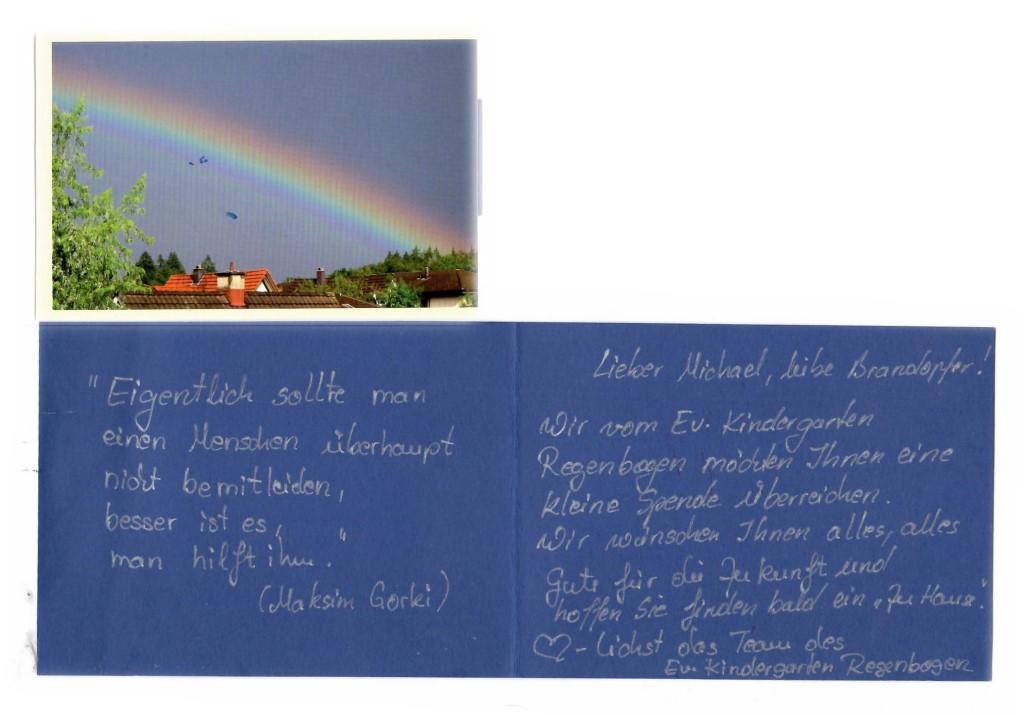 "Eigentlich sollte man
einen Menschen überhaupt
nicht bemitleiden,
besser ist es,
man hilft ihm."
(Maksim Gorki)
Lieber Michael, liebe Brandopfer!
Wir vom Ev. Kindergarten
Regenbogen möchten Ihnen eine
kleine Spende überreichen.
Wir wünschen Ihnen alles, alles
Gute für die Zukunft und
hoffen Sie finden bald ein „Zu Hause".
♡-lichst das Team des
Ev. Kindergarten Regenbogen